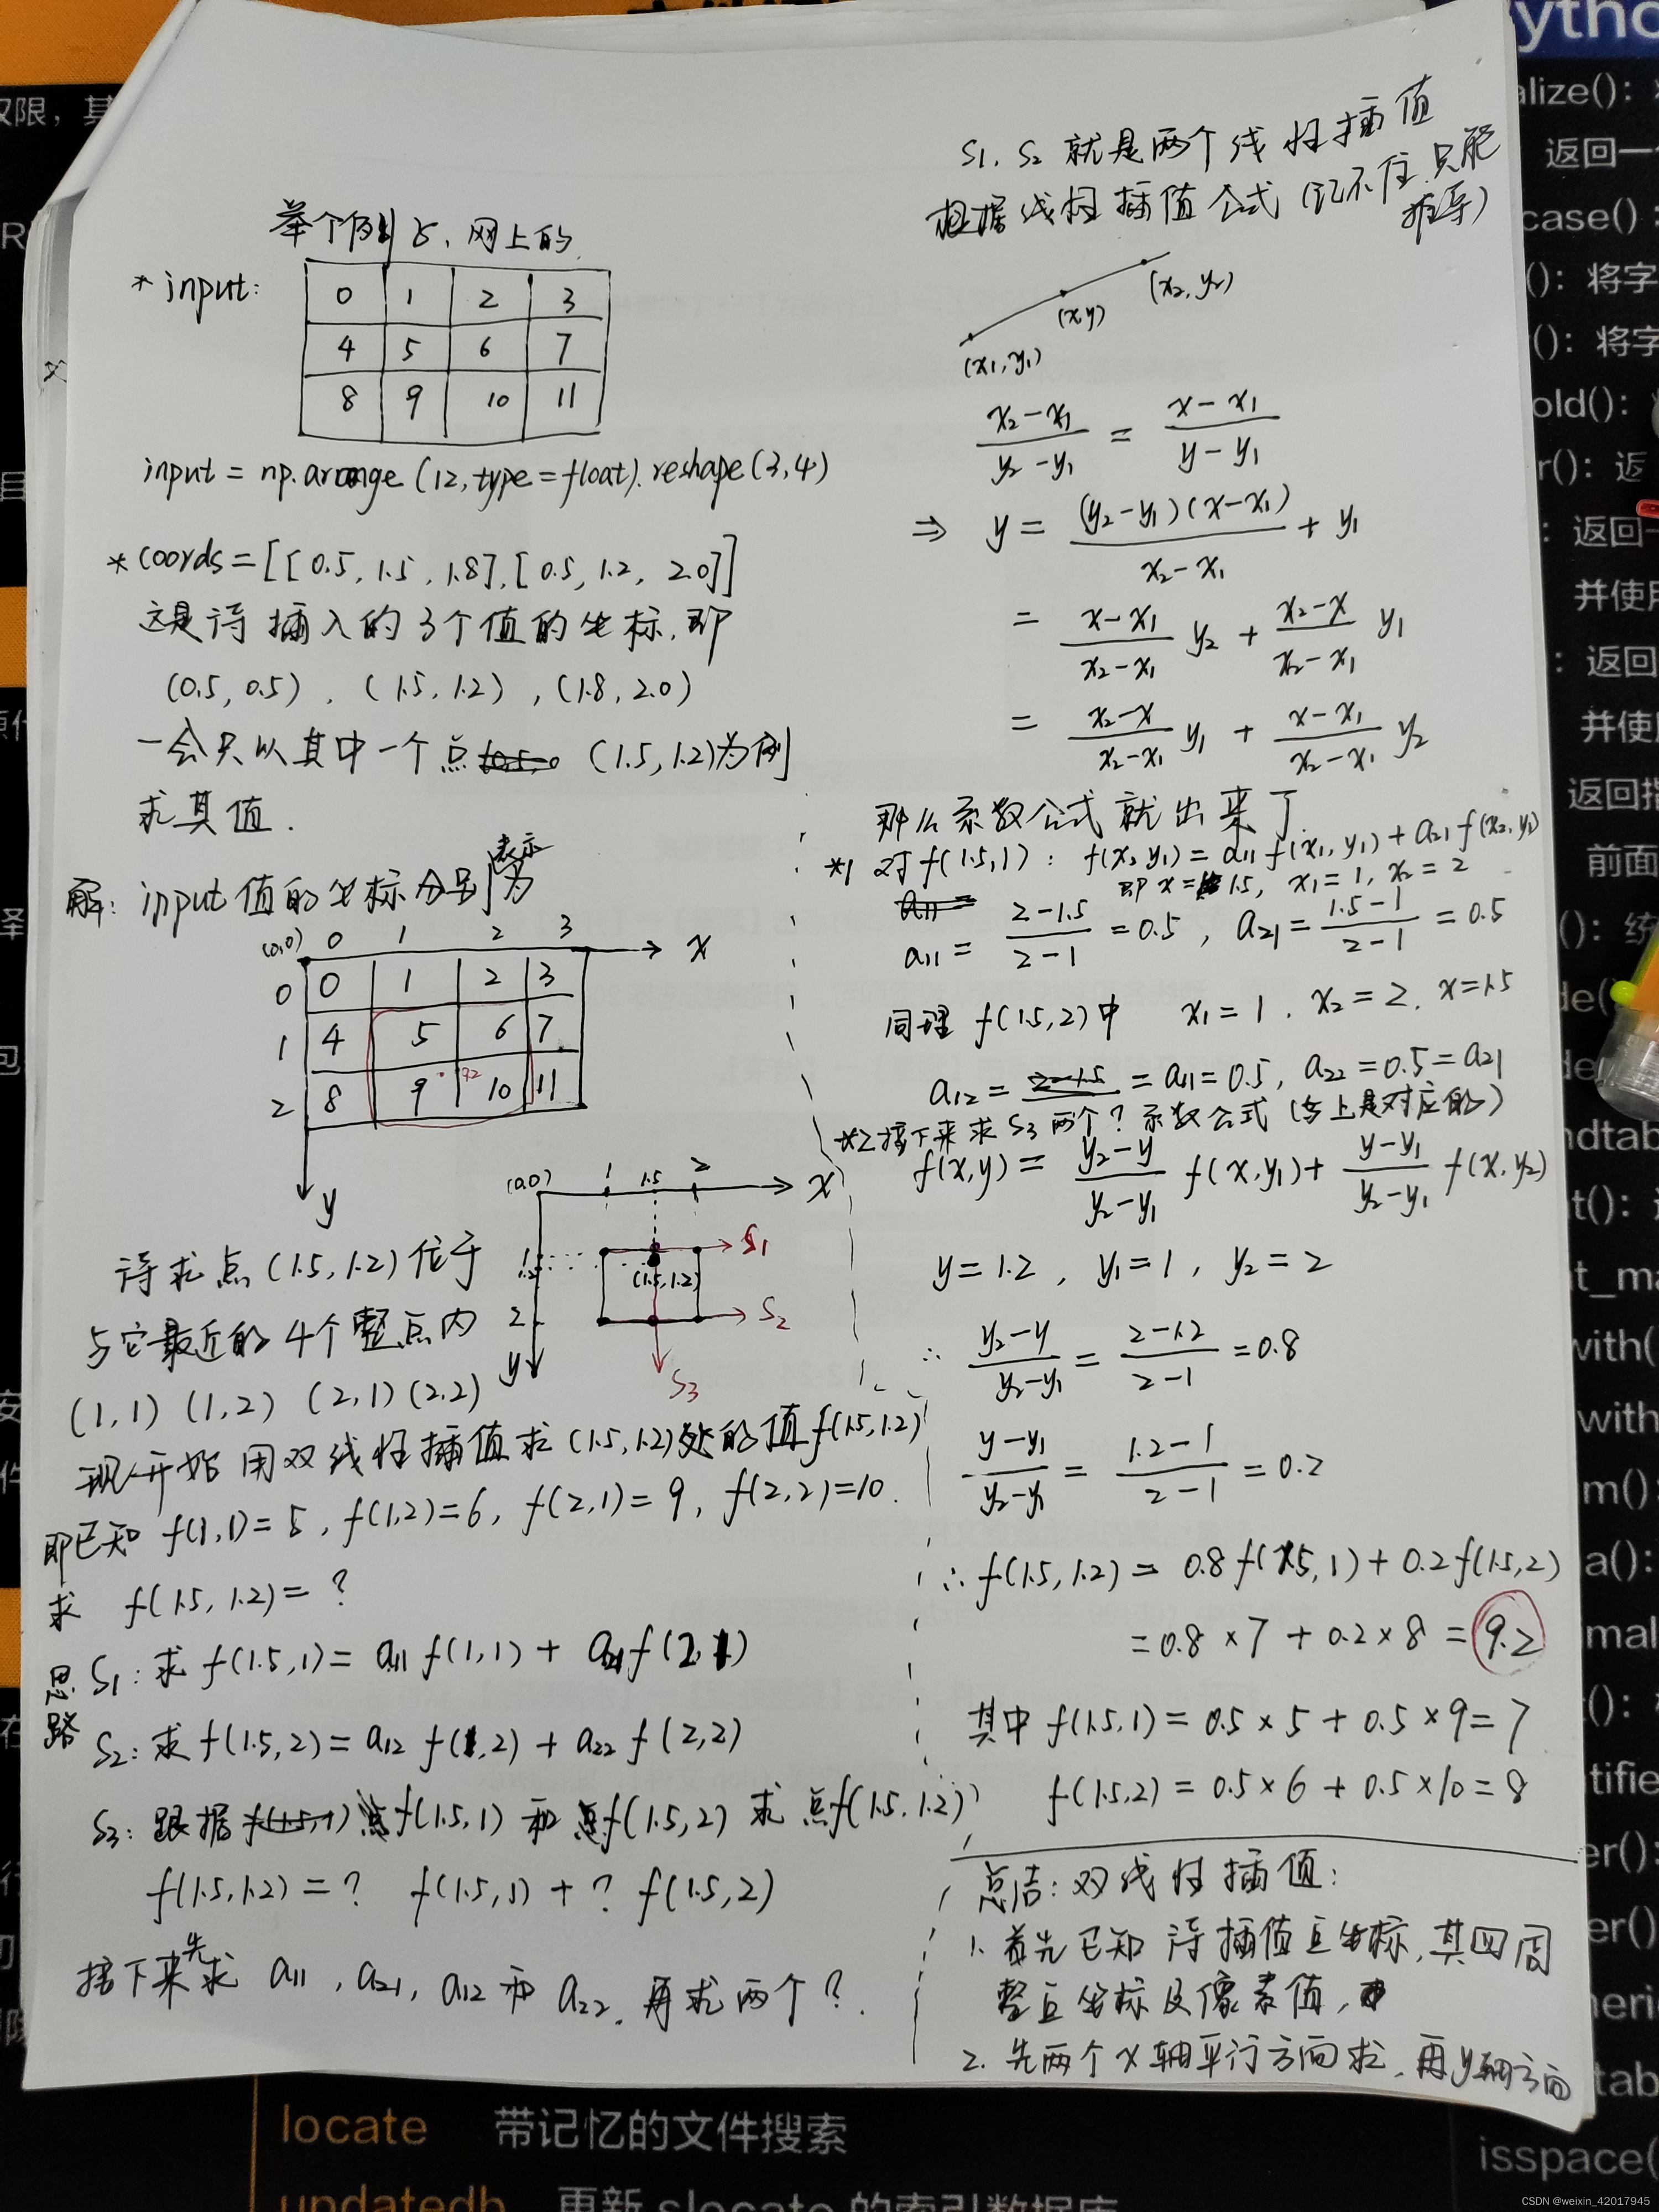 举个例子,网上的.
* input:
0 1 2 3
4 5 6 7
8 9 10 11
input = np.arange (12, type = float). reshape (3,4)
* coords = [[0.5, 1.5, 1.8], [0.5, 1.2, 2.0]]
这是待插入的3个值的坐标,即
(0.5, 0.5) , (1.5, 1.2) , (1.8, 2.0)
一会只以其中一个点 (1.5, 1.2)为例
求其值.
解: input 值的坐标分别表示为
(0,0) 0 1 2 3 x
0 0 1 2 3
1 4 5 6 7
2 8 9 10 11
9.2
y
(0,0) 1 1.5 2 x
1 S1
1.2 (1.5, 1.2)
2 S2
y S3
待求点 (1.5, 1.2) 位于
与它最近的4个整点内
(1,1) (1,2) (2,1) (2,2)
现开始用双线性插值求 (1.5, 1.2)处的值 f(1.5, 1.2)
即已知 f(1,1) = 5 , f(1,2) = 6, f(2,1) = 9, f(2,2) = 10.
求 f(1.5, 1.2) = ?
思路
S1: 求 f(1.5, 1) = a11 f(1,1) + a21 f(2,1)
S2: 求 f(1.5, 2) = a12 f(1,2) + a22 f(2,2)
S3: 跟据 点f(1.5, 1) 和 点f(1.5, 2) 求 点f(1.5, 1.2)
f(1.5, 1.2) = ? f(1.5, 1) + ? f(1.5, 2)
接下来先求 a11 , a21, a12 和 a22, 再求两个?.
S1. S2 就是两个线性插值
根据线性插值公式 (记不住,只能
推导)
(x2, y2)
(x,y)
(x1, y1)
(x2-x1)/(y2-y1) = (x-x1)/(y-y1)
⇒ y = (y2-y1)(x-x1)/(x2-x1) + y1
= (x-x1)/(x2-x1) y2 + (x2-x)/(x2-x1) y1
= (x2-x)/(x2-x1) y1 + (x-x1)/(x2-x1) y2
那么系数公式就出来了
*1 对 f(1.5, 1) : f(x, y1) = a11 f(x1, y1) + a21 f(x2, y1)
即 x = 1.5, x1 = 1, x2 = 2
a11 =
a11 = (2-1.5)/(2-1) = 0.5 , a21 = (1.5-1)/(2-1) = 0.5
同理 f(1.5, 2) 中 x1 = 1 , x2 = 2, x = 1.5
a12 = 2-1.5 = a11 = 0.5, a22 = 0.5 = a21
*2 接下来求 S3 两个? 系数公式 (与上是对应的)
f(x,y) = (y2-y)/(y2-y1) f(x, y1) + (y-y1)/(y2-y1) f(x, y2)
y = 1.2 , y1 = 1 , y2 = 2
∴ (y2-y)/(y2-y1) = (2-1.2)/(2-1) = 0.8
(y-y1)/(y2-y1) = (1.2-1)/(2-1) = 0.2
∴ f(1.5, 1.2) = 0.8 f(1.5, 1) + 0.2 f(1.5, 2)
= 0.8 × 7 + 0.2 × 8 = 9.2
其中 f(1.5, 1) = 0.5 × 5 + 0.5 × 9 = 7
f(1.5, 2) = 0.5 × 6 + 0.5 × 10 = 8
总结: 双线性插值:
1. 首先已知 待插值点坐标, 其四周
整点坐标及像素值,
2. 先两个 x 轴平行方向求, 再y轴方向
locate 带记忆的文件搜索
updatedb 更新 slocate 的索引数据库
isspace(
CSDN @weixin_42017945